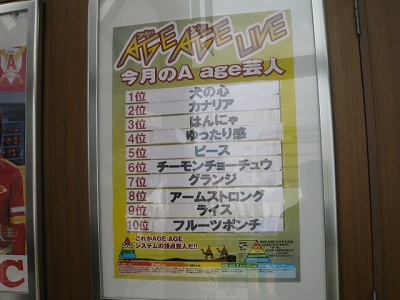 AGE AGE LIVE
今月のA age芸人
1位 犬の心
2位 カナリア
3位 はんにゃ
4位 ゆったり感
5位 ピース
6位 チーモンチョーチュウ
7位 グランジ
8位 アームストロング
9位 ライス
10位 フルーツポンチ
これがAGE AGE
システムの頂点芸人だ!!
A
C